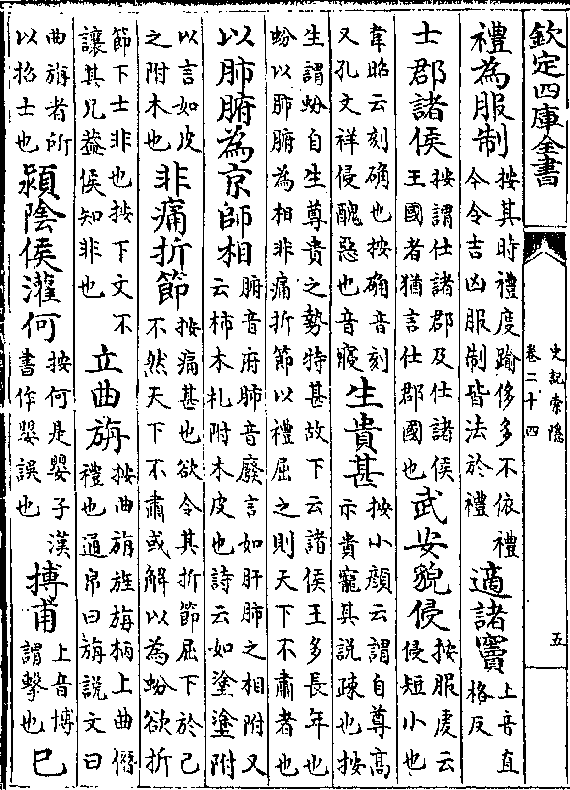 欽定四庫全書
史記索隱
卷二十四
五
禮為服制按其時禮度踰侈多不依禮今令吉凶服制皆法於禮適諸竇上音直格反
士郡諸侯按謂仕諸郡及仕諸侯王國者猶言仕郡國也武安貌侵按服虔云侵短小也
韋昭云刻确也按确音刻又孔文祥侵醜惡也音寢生貴甚按小顔云謂自尊高示貴寵其説疎也按
生謂蚡自生尊貴之勢特甚故下云諸侯王多長年也蚡以肺腑為相非痛折節以禮屈之則天下不肅者也
以肺腑為京師相腑音府肺音廢言如肝肺之相附又云柿木札附木皮也詩云如塗塗附
以言如皮之附木也非痛折節按痛甚也欲令其折節屈下於己不然天下不肅或解以為蚡欲折
節下士非也按下文不讓其兄葢侯知非也立曲旃按曲旃旌旃柄上曲僭禮也通帛曰旃説文曰
曲旃者所以招士也潁陰侯灌何按何是嬰子漢書作嬰誤也搏甫上音博謂擊也已